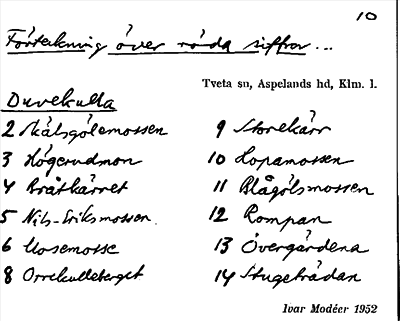 10
Förteckning över röda siffror...
Tveta sn, Aspelands hd, Klm. l.
Duvekulla
2 Skälsgölemossen
3 Högerudmon
4 Bråtkärret
5 Nils-Eriksmossen
6 Mosemosse
8 Orrekulleberget
9 Storekärr
10 Lopamossen
11 Blågölsmossen
12 Rompan
13 Övergärdena
14 Stugeträdan
Ivar Modéer 1952